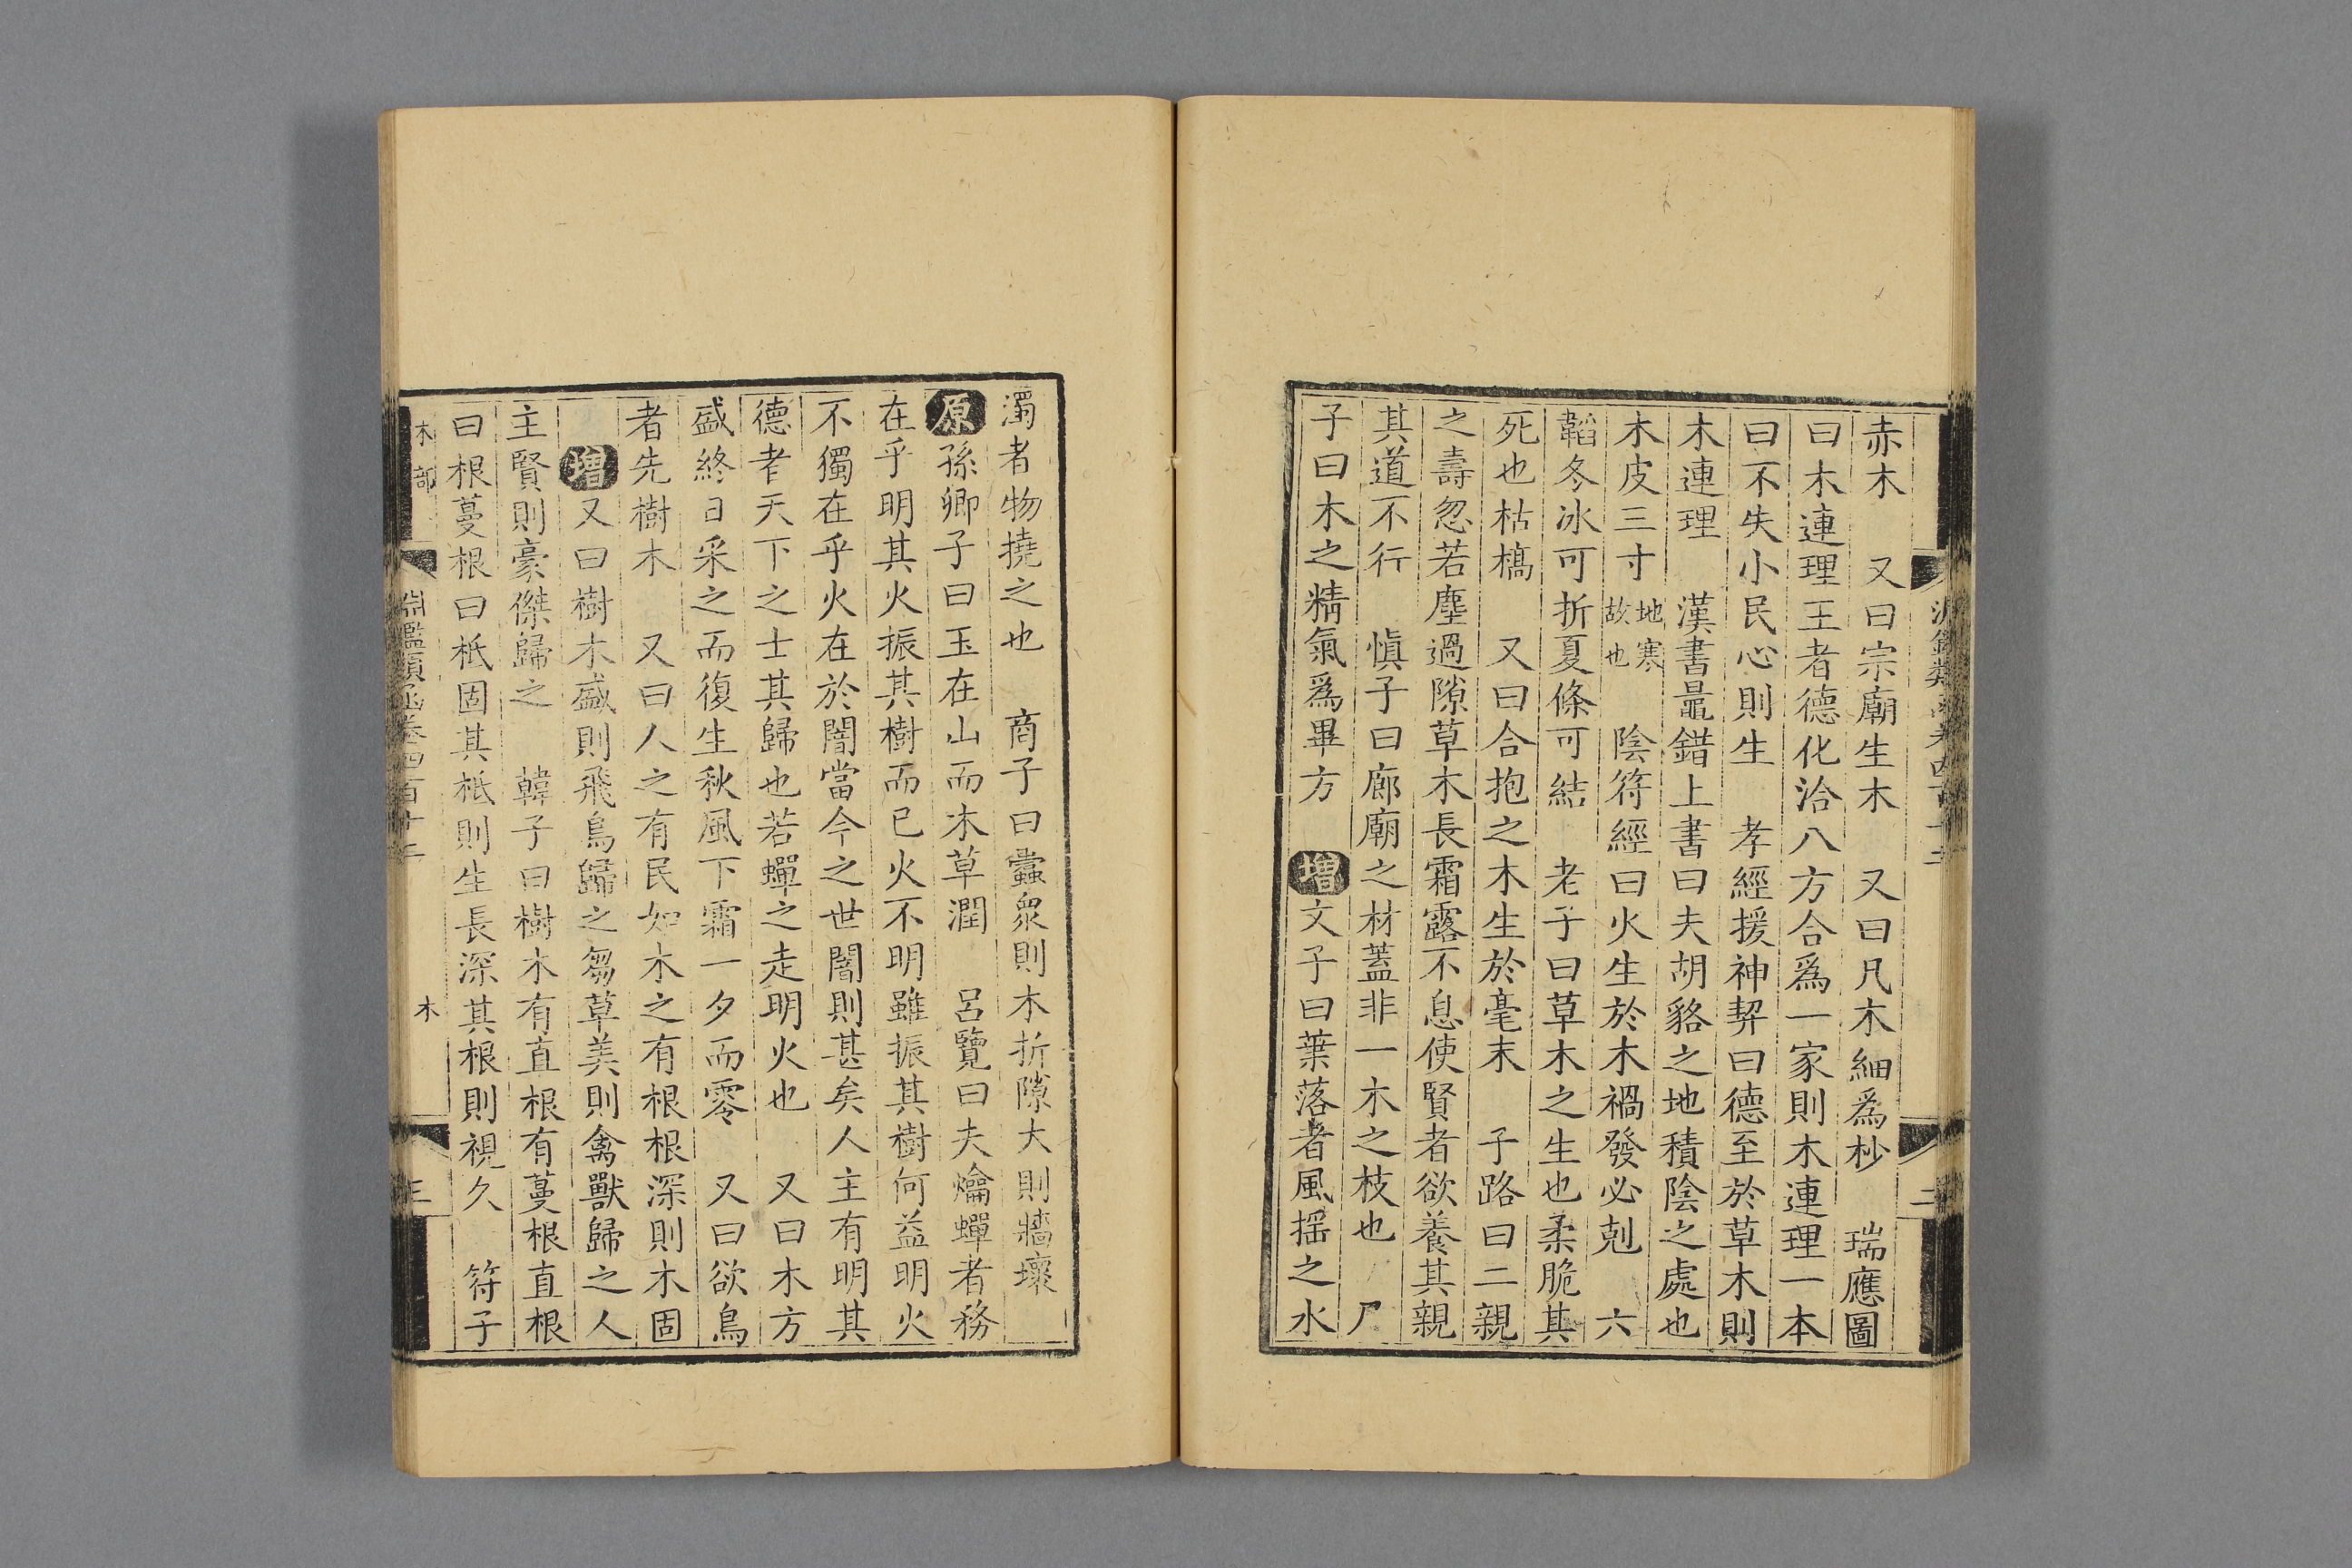 赤木　又曰宗廟生木　又曰凡木細爲杪　瑞應圖
曰木連理王者德化洽八方合爲一家則木連理一本
曰不失小民心則生　孝經援神契曰德至於草木則
木連理　漢書鼂錯上書曰夫胡貉之地積陰之處也
木皮三寸地寒故也　陰符經曰火生於木禍發必剋　六
韜冬冰可折夏條可結　老子曰草木之生也柔脆其
死也枯槁　又曰合抱之木生於毫末　子路曰二親
之壽忽若塵過隙草木長霜露不息使賢者欲養其親
其道不行　慎子曰廊廟之材蓋非一木之枝也
子曰木之精氣爲畢方　增文子曰葉落者風搖之水
濁者物撓之也　商子曰蠹衆則木折隙大則牆壞
原孫卿子曰玉在山而木草潤　呂覽曰夫爚蟬者務
在乎明其火振其樹而已火不明雖振其樹何益明火
不獨在乎火在於闇當今之世闇則甚矣人主有明其
德者天下之士其歸也若蟬之走明火也　又曰木方
盛終日采之而復生秋風下霜一夕而零　又曰欲鳥
者先樹木　又曰人之有民如木之有根根深則木固
增又曰樹木盛則飛鳥歸之芻草美則禽獸歸之人
主賢則豪傑歸之　韓子曰樹木有直根有蔓根直根
曰根蔓根曰柢固其柢則生長深其根則視久　符子
木部　淵鑑類函卷四百十二　木　三